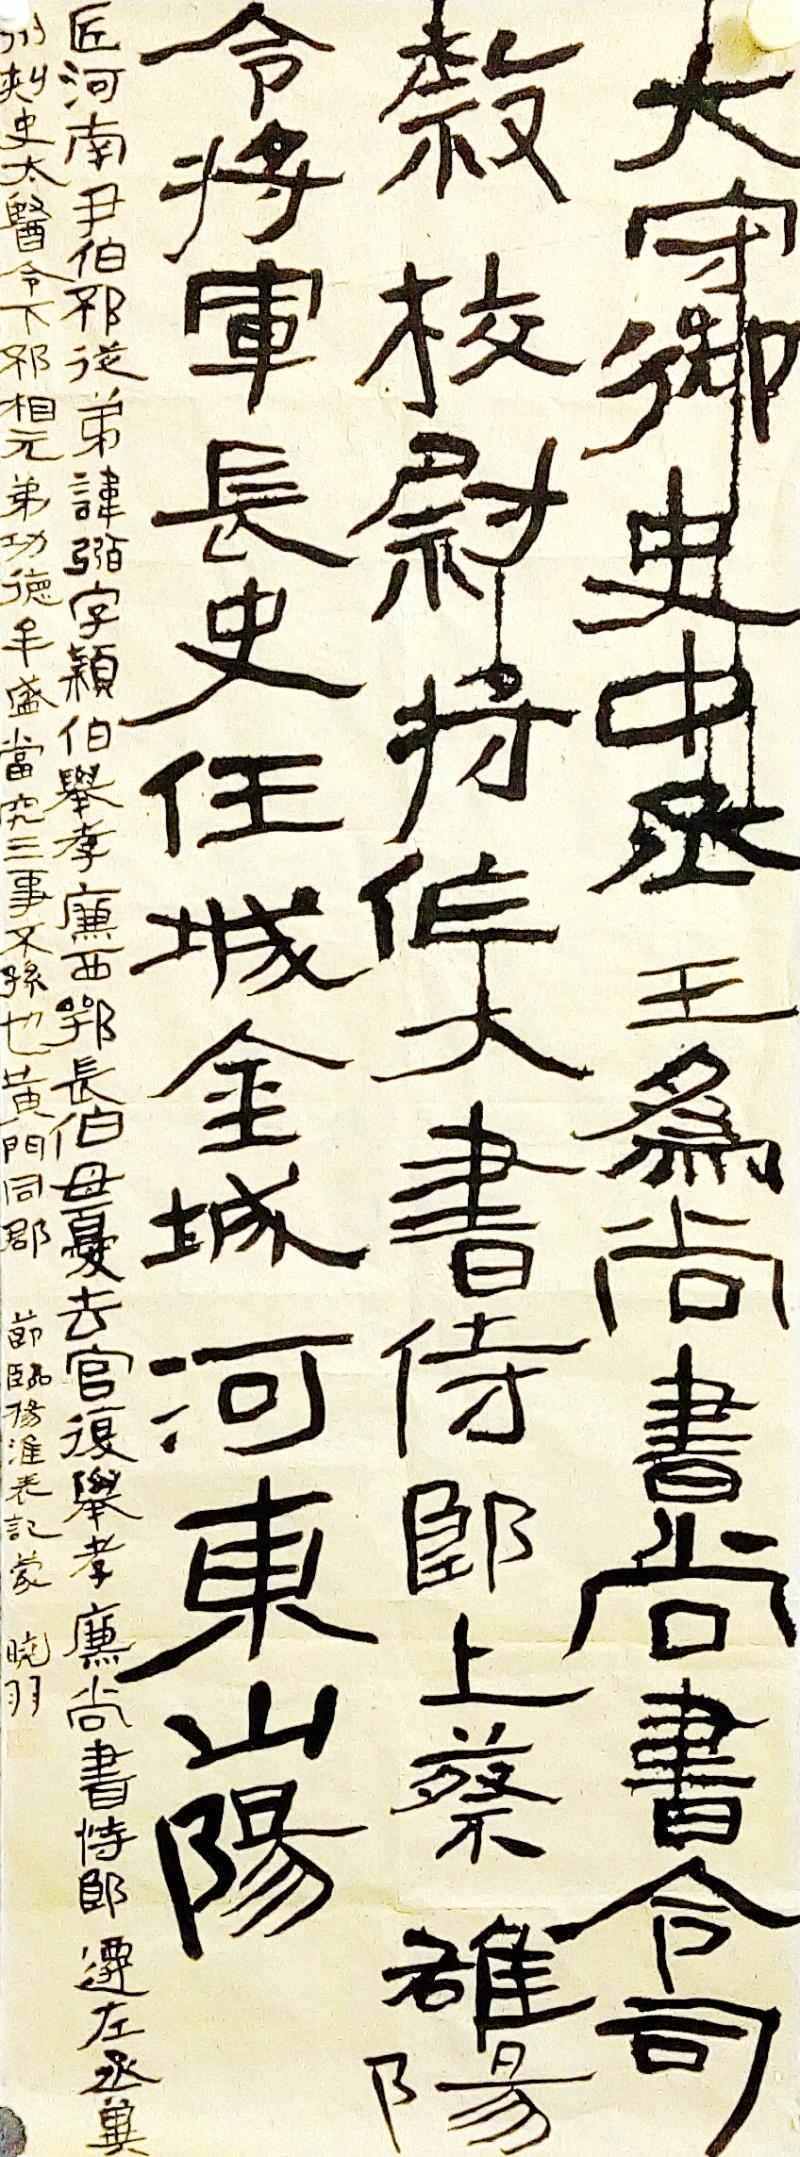 大守御史中丞三為尚書尚書令司
隸校尉將作大書侍郎上蔡雒陽
令將軍長史任城金城河東山陽
匠河南尹伯邳從弟諱弼字穎伯舉孝廉西鄂長伯母憂去官復舉孝廉尚書侍郎遷左丞冀
州刺史太醫令下邳相元弟功德牟盛當究三事不孫也黃門同郡 節臨楊淮表記 曉羽